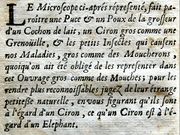 LE Microscope ci-aprés représenté, fait pa-
roître une Puce & un Poux de la grosseur
d'un Cochon de lait, un Ciron gros comme une
Grenouille, & les petits Insectes qui causent
nos Maladies, gros comme des Moucherons;
quoiqu'on ait été obligé de les representer dans
cet Ouvrage gros comme des Mouches, pour
rendre plus reconnoissables, jugez de leur étrange
petitesse naturelle, en vous figurant qu'ils sont
à l'égard d'un Ciron, ce qu'un Ciron est à l'é-
gard d'un Elephant.